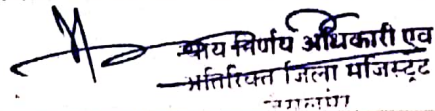 न्याय निर्णय अधिकारी एवं
अतिरिक्त जिला मजिस्ट्रट